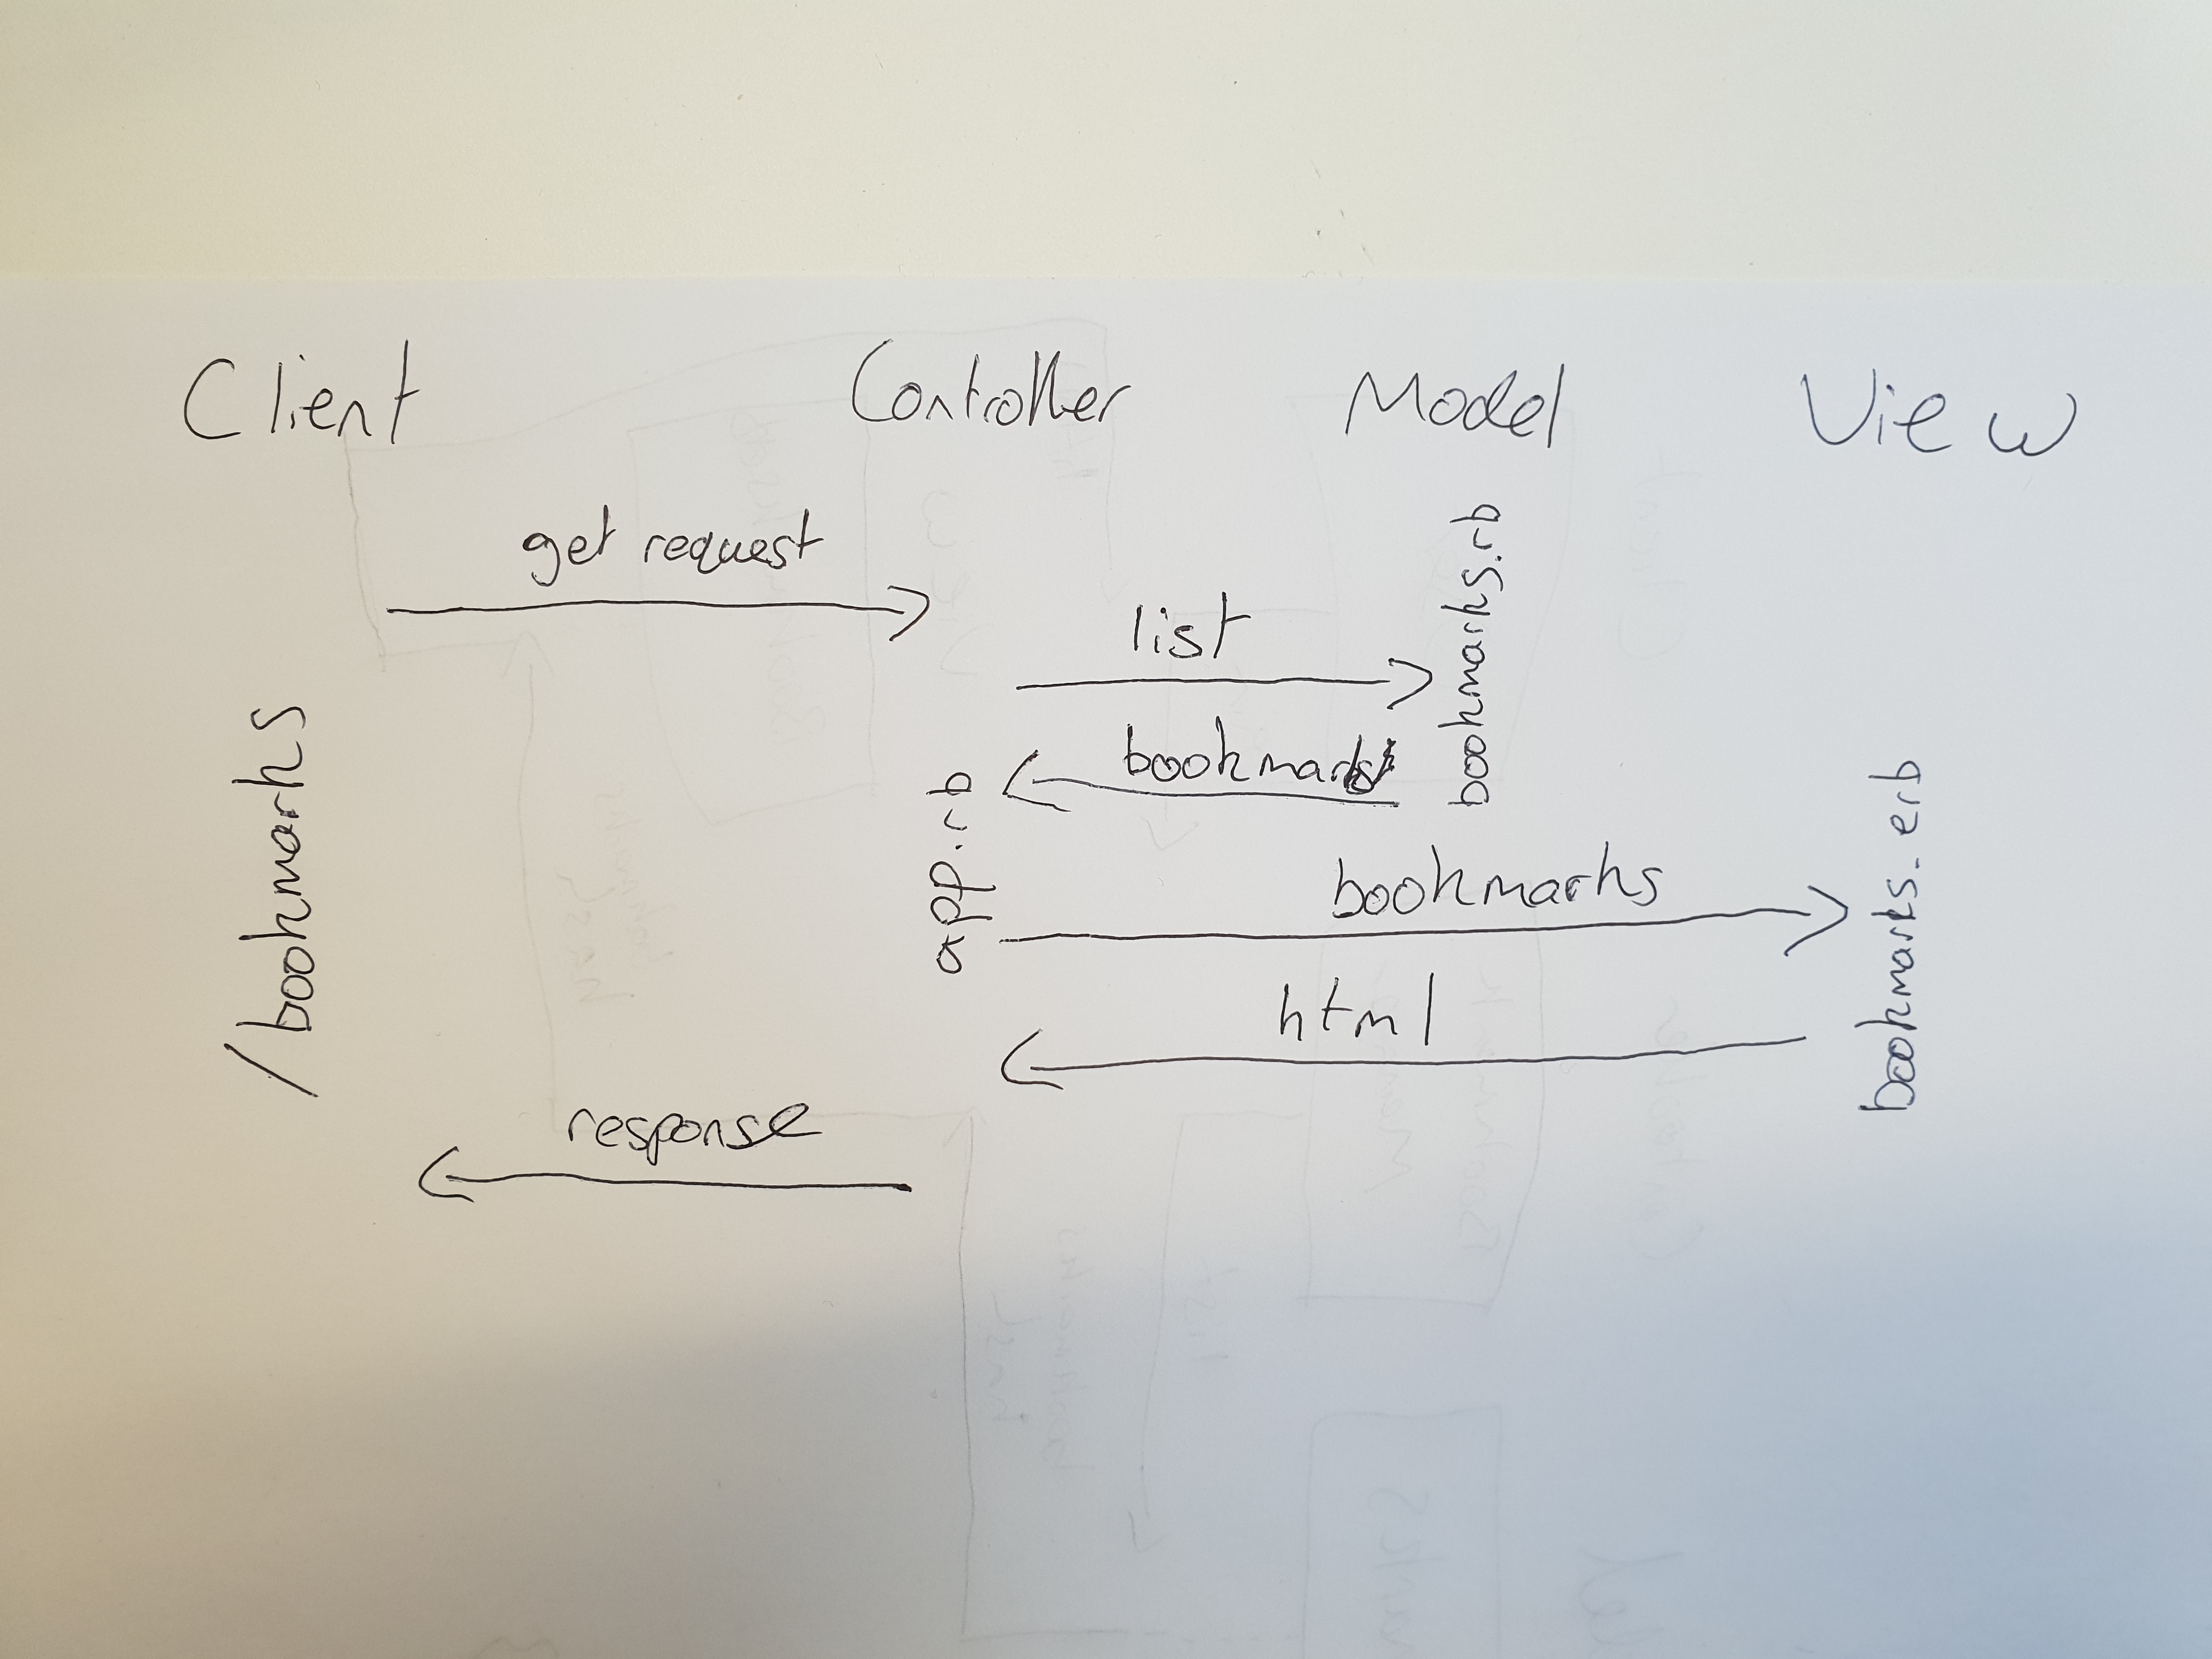 Client Controller Model View
get request
list
bookmarks.rb
bookmarks
/bookmarks
app.rb
bookmarks
bookmarks.erb
html
response